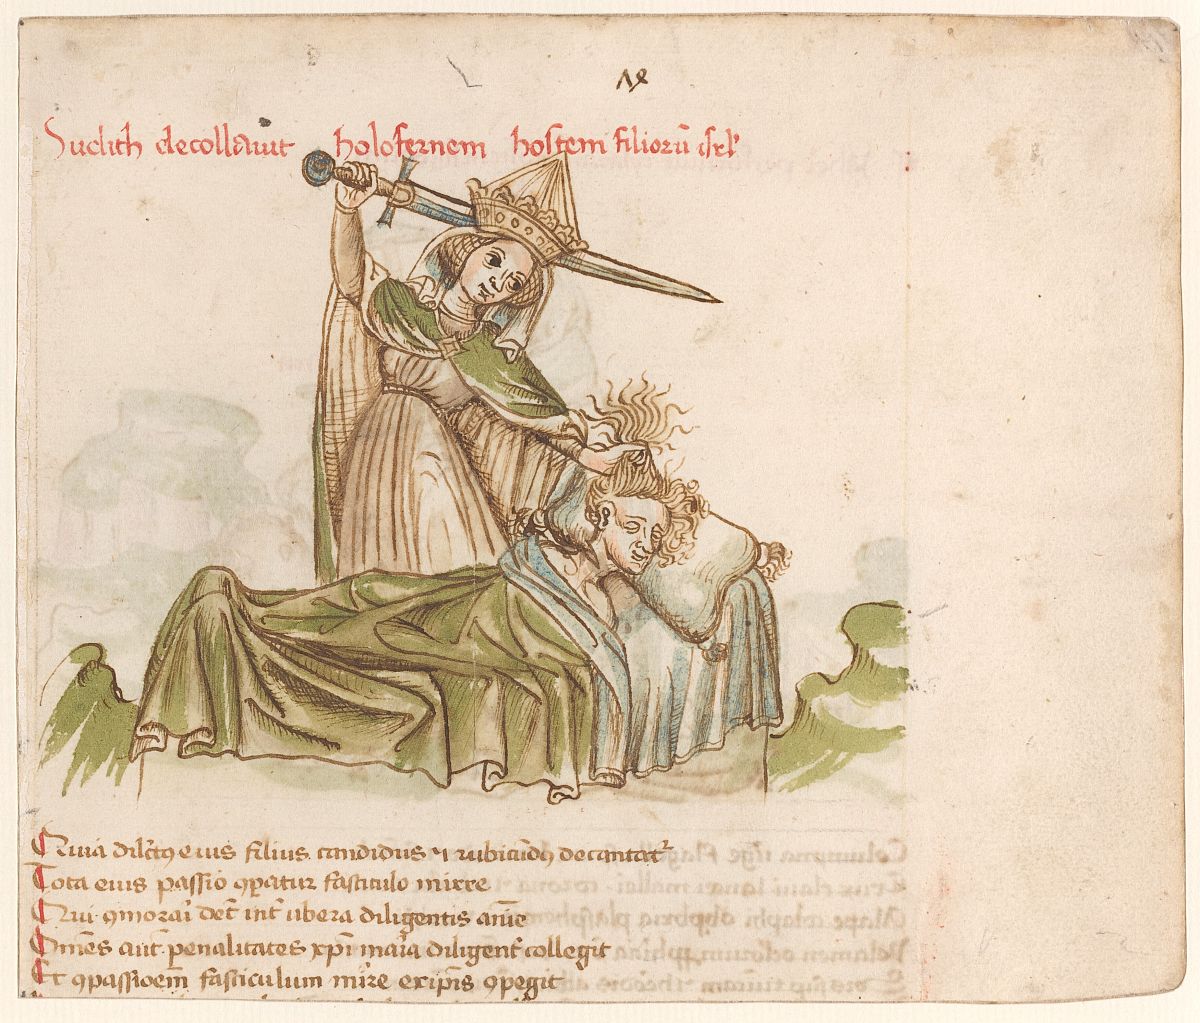 Judith decollavit holofernem hostem filiorū isrl'
Quia dilctꝰ eius filius candidus ⁊ rubicūdꝰ decantatᷣ
Tota eius passio ꝯparatur fasciculo mirre
Qui ꝯmorari det intᷣ ubera diligentis aīe
Omēs aut̄ penalitates xp̄i maria diligentᷣ collegit
Et ꝯpassioēm fasciculum mirre ex ip̄is ꝯpegit